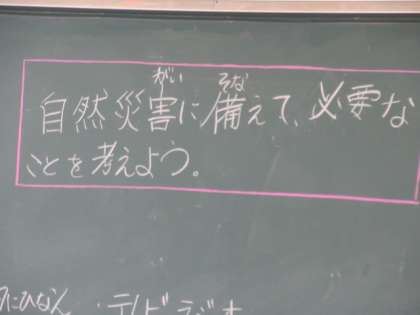 がい そな
自然災害に備えて、必要な
ことを考えよう。
にひなん ・テレビ ラジオ